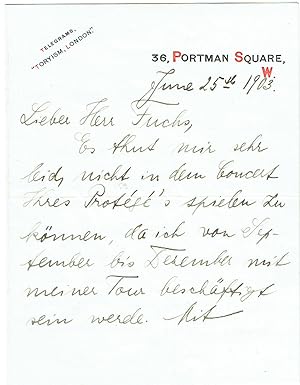 TELEGRAMS,
"TORYISM, LONDON."
36, PORTMAN SQUARE,
W.
June 25th 1903.
Lieber Herr Fuchs,
Es thut mir sehr
leid, nicht in dem Concert
Ihres Protégé's spielen zu
können, da ich von Sep-
tember bis Dezember mit
meiner Tour beschäftigt
sein werde. Mit